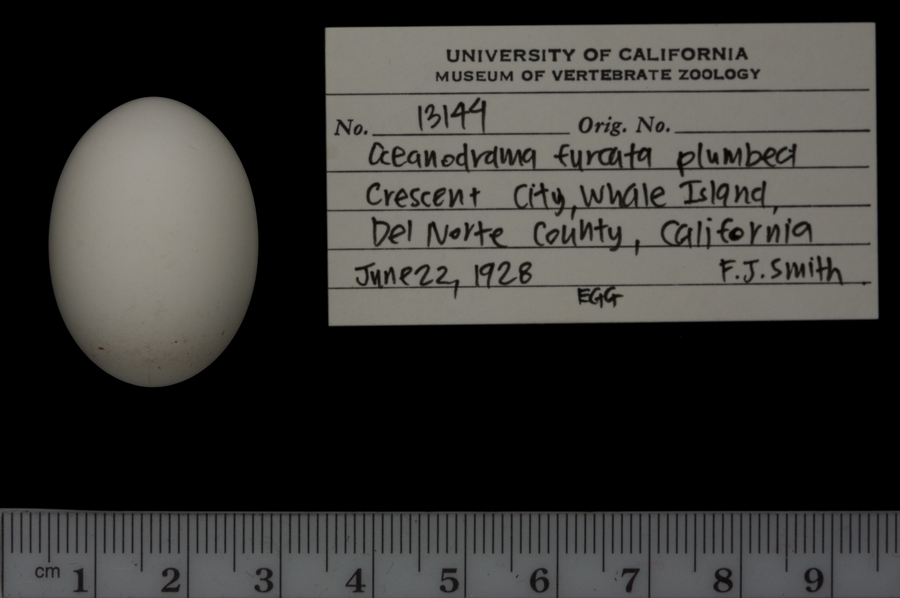 UNIVERSITY OF CALIFORNIA
MUSEUM OF VERTEBRATE ZOOLOGY
No. 13144 Orig. No.
Oceanodrama furcata plumbea
Crescent City, Whale Island,
Del Norte County, California
June 22, 1928 F.J. Smith
EGG
cm 1 2 3 4 5 6 7 8 9